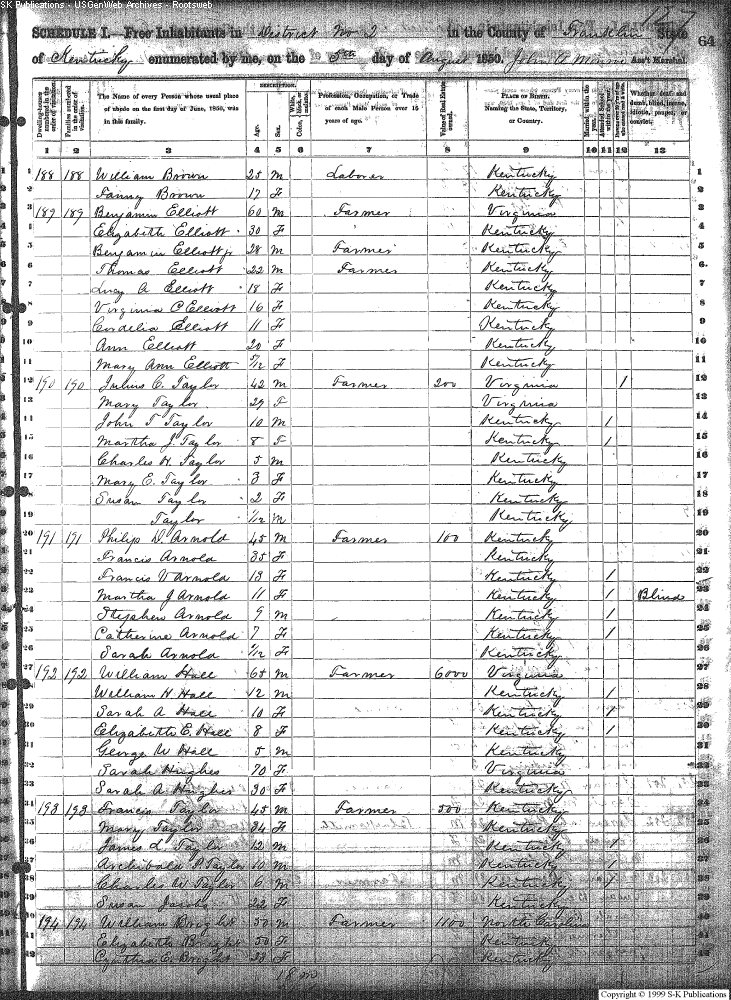 SK Publications - USGenWeb Archives - Rootsweb
SCHEDULE I.—Free Inhabitants in District No 2 in the County of Franklin State
of Kentucky enumerated by me, on the 5th day of August 1850. John A Ass't Marshal.
64
Dwelling-houses numbered in the order of visitation.
Families numbered in the order of visitation.
The Name of every Person whose usual place of abode on the first day of June, 1850, was in this family.
DESCRIPTION.
Age.
Sex.
Color, White, black, or mulatto.
Profession, Occupation, or Trade of each Male Person over 15 years of age.
Value of Real Estate owned.
PLACE OF BIRTH. Naming the State, Territory, or Country.
Married within the year.
Attended School within the year.
Whether deaf and dumb, blind, insane, idiotic, pauper, or convict.
1 2 3 4 5 6 7 8 9 10 11 12 13
1 188 188 William Brown 25 M Laborer Kentucky 1
2 Fanny Brown 17 F Kentucky 2
3 189 189 Benjamin Elliott 60 M Farmer Virginia 3
4 Elizabeth Elliott 30 F Kentucky 4
5 Benjamin Elliott jr 28 M Farmer Kentucky 5
6 Thomas Elliott 22 M Farmer Kentucky 6
7 Lucy A Elliott 18 F Kentucky 7
8 Virginia C Elliott 16 F Kentucky 8
9 Cordelia Elliott 11 F Kentucky 9
10 Ann Elliott 20 F Kentucky 10
11 Mary Ann Elliott 5/12 F Kentucky 11
12 190 190 Julius C. Taylor 42 M Farmer 200 Virginia / 12
13 Mary Taylor 29 F Virginia 13
14 John T Taylor 10 M Kentucky / 14
15 Martha J. Taylor 8 F Kentucky / 15
16 Charles H. Taylor 5 M Kentucky 16
17 Mary E. Taylor 3 F Kentucky 17
18 Susan Taylor 2 F Kentucky 18
19 Taylor 1/12 M Kentucky 19
20 191 191 Philip D. Arnold 45 M Farmer 100 Kentucky 20
21 Francis Arnold 35 F Kentucky 21
22 Francis V Arnold 13 F Kentucky / 22
23 Martha J Arnold 11 F Kentucky / Blind 23
24 Stephen Arnold 9 M Kentucky / 24
25 Catherine Arnold 7 F Kentucky / 25
26 Sarah Arnold F Kentucky 26
27 192 192 William Hall 65 M Farmer 6000 Virginia 27
28 William H. Hall 12 M Kentucky / 28
29 Sarah A Hall 10 F Kentucky / 29
30 Elizabeth E. Hall 8 F Kentucky / 30
31 George W Hall 5 M Kentucky 31
32 Sarah Hughes 70 F Virginia 32
33 Sarah A Hughes 30 F Kentucky 33
34 193 193 Francis Taylor 45 M Farmer 500 Kentucky 34
35 Mary Taylor 34 F Kentucky 35
36 James L Taylor 12 M Kentucky / 36
37 Archibald Taylor 10 M Kentucky / 37
38 Charles W Taylor 6 M Kentucky / 38
39 Susan Jacobs 22 F Kentucky 39
40 194 194 William Bright 50 M Farmer 1100 North Carolina 40
41 Elizabeth Bright 50 F Kentucky 41
42 Cynthia E. Bright 23 F Kentucky 42
18 m
Copyright © 1999 S-K Publications